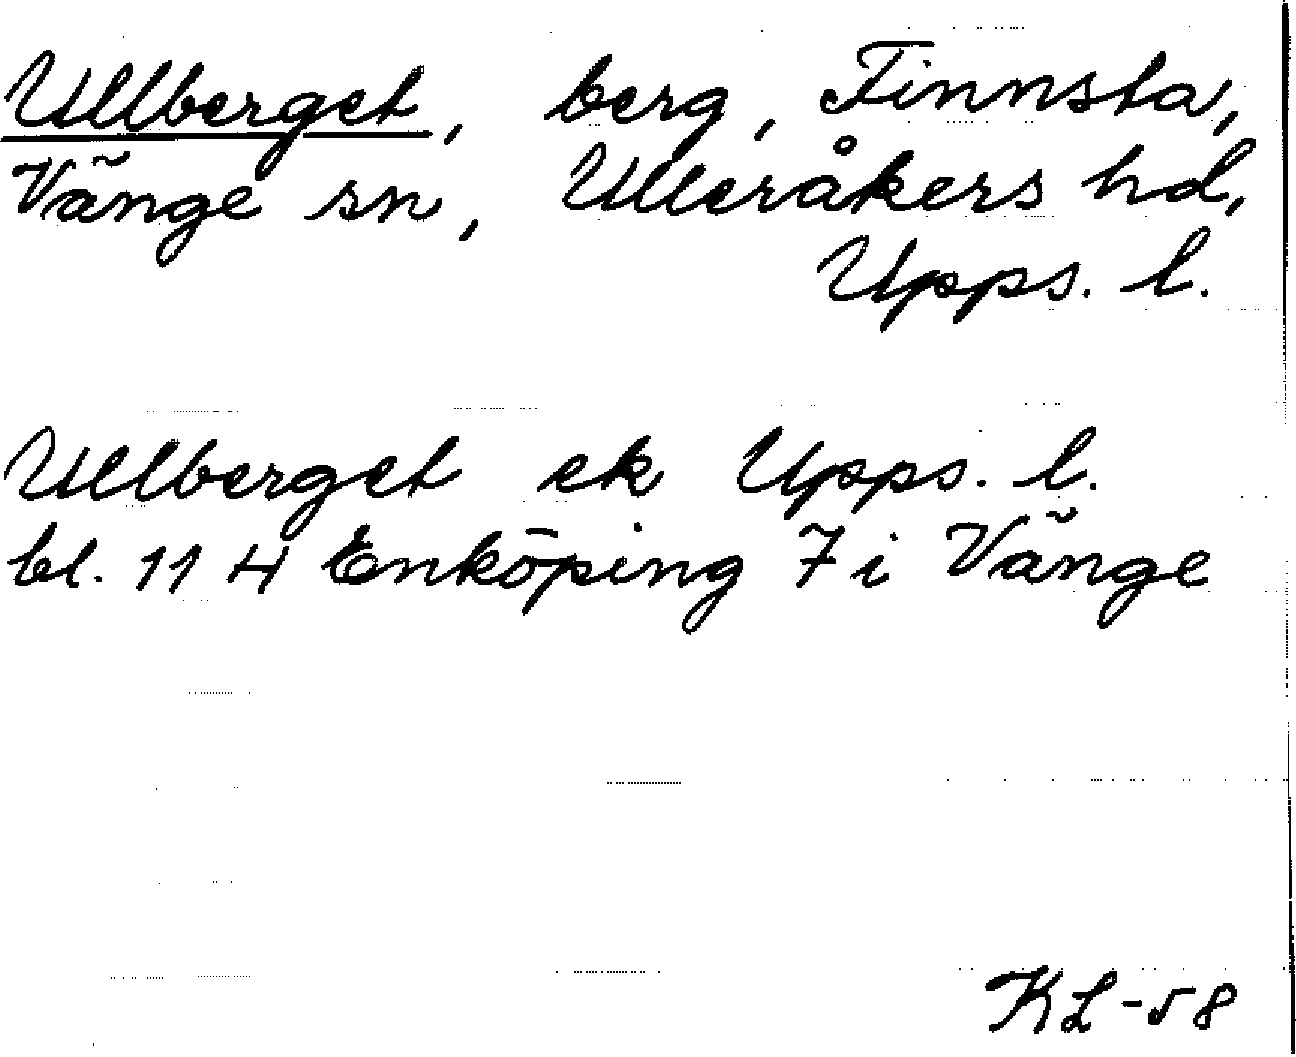 Ullberget, berg, Finnsta,
Vänge sn, Ulleråkers hd,
Upps. l.
Ullberget ek Upps. l.
bl. 11 4 Enköping 7 i Vänge
KL-58